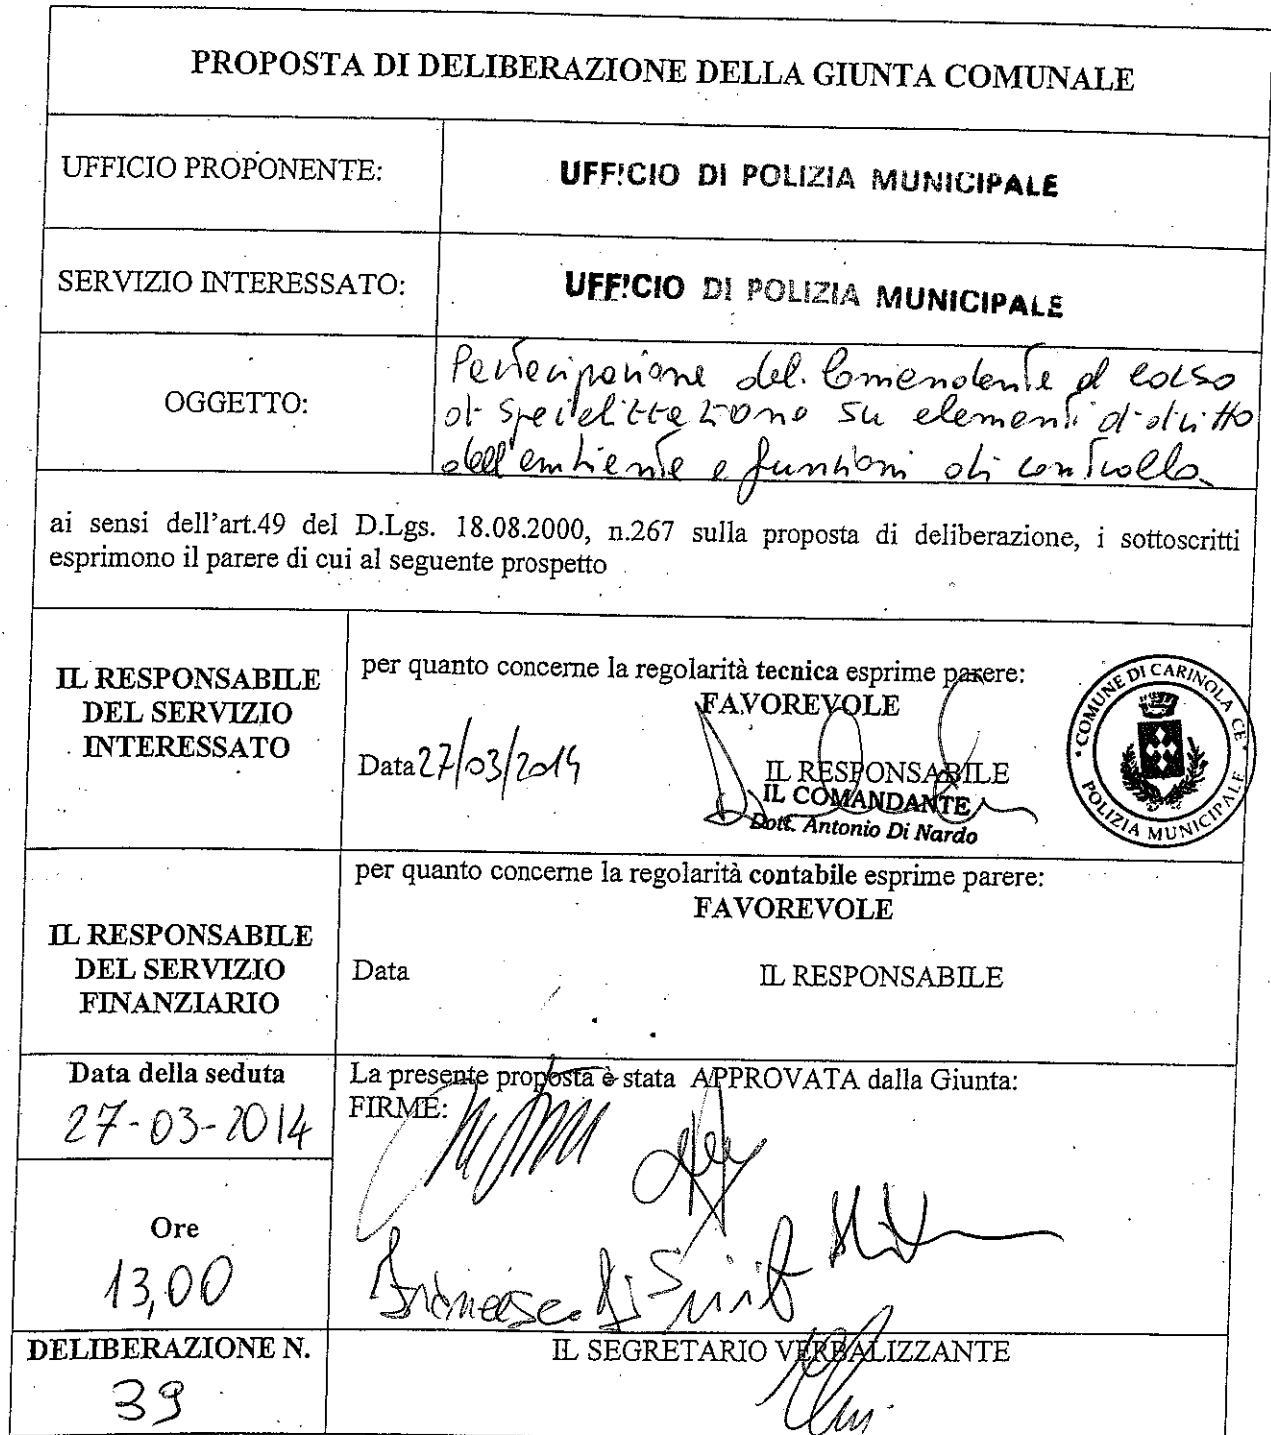 PROPOSTA DI DELIBERAZIONE DELLA GIUNTA COMUNALE
UFFICIO PROPONENTE:
UFFICIO DI POLIZIA MUNICIPALE
SERVIZIO INTERESSATO:
UFFICIO DI POLIZIA MUNICIPALE
OGGETTO:
Partecipazione del Comandante al corso
di specializzazione su elementi di diritto
dell'ambiente e funzioni di controllo.
ai sensi dell'art.49 del D.Lgs. 18.08.2000, n.267 sulla proposta di deliberazione, i sottoscritti
esprimono il parere di cui al seguente prospetto
IL RESPONSABILE
DEL SERVIZIO
INTERESSATO
per quanto concerne la regolarità tecnica esprime parere:
FAVOREVOLE
Data 27/03/2014
IL RESPONSABILE
IL COMANDANTE
Dott. Antonio Di Nardo
COMUNE DI CARINOLA CE
POLIZIA MUNICIPALE
IL RESPONSABILE
DEL SERVIZIO
FINANZIARIO
per quanto concerne la regolarità contabile esprime parere:
FAVOREVOLE
Data
IL RESPONSABILE
Data della seduta
27-03-2014
Ore
13,00
La presente proposta è stata APPROVATA dalla Giunta:
FIRME:
DELIBERAZIONE N.
39
IL SEGRETARIO VERBALIZZANTE